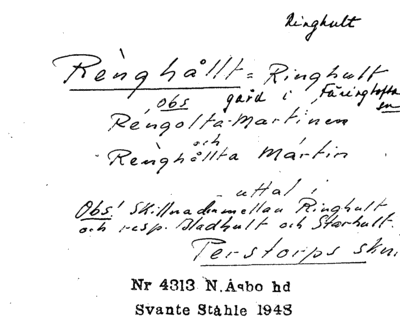 Ringhult
Rènghållt = Ringhult
obs gård i Färingtofta
sn
Réngolta-Martinen
och
Rènghållta Mártin
uttal i
Obs! Skillnaden mellan Ringhult
och resp. Bladhult och Storhult.
Perstorps skn.
Nr 4313 N. Åsbo hd
Svante Ståhle 1948